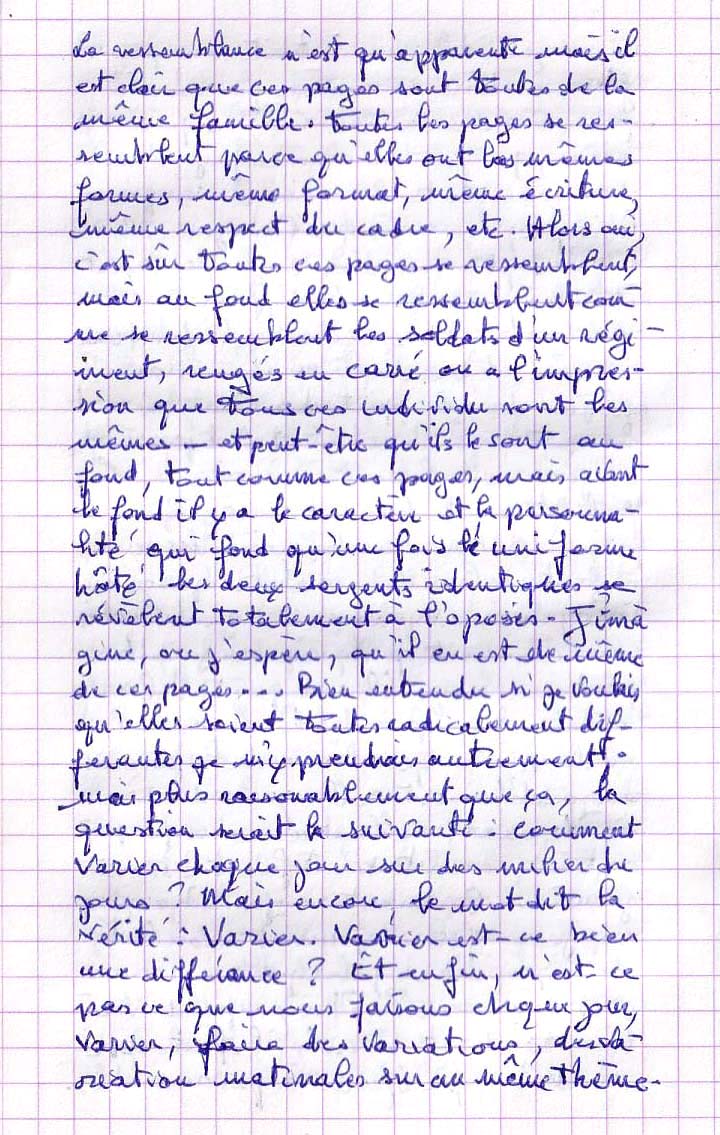 La ressemblance n'est qu'apparente mais il
est clair que ces pages sont toutes de la
même famille. Toutes les pages se res-
semblent parce qu'elles ont les mêmes
formes, même format, même écriture,
même respect du cadre, etc. Alors oui,
c'est sûr toutes ces pages se ressemblent,
mais au fond elles se ressemblent com-
me se ressemblent les soldats d'un régi-
ment, rengés en carré on a l'impres-
sion que tous ces individu sont les
mêmes – et peut-être qu'ils le sont au
fond, tout comme ces pages, mais avant
le fond il y a le caractère et la personna-
lité qui fond qu'une fois l'uniforme
hôté les deux sergents identiques se
révèlent totalement à l'oposés. J'ima
gine, ou j'espère, qu'il en est de même
de ces pages... Bien entendu si je voulais
qu'elles soient toutes radicalement dif-
ferantes je m'y prendrais autrement.
mais plus raisonablement que ça, la
question serait la suivante : comment
varier chaque jour sur des milier de
jours ? Mais encore, le mot dit la
vérité : Varier. Varier est-ce bien
une différance ? Et enfin, n'est-ce
pas ce que nous faisons chque jour,
varier, faire des variations, des va
riation matinales sur un même thème.